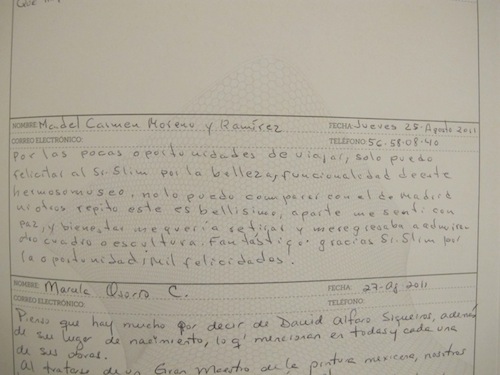 NOMBRE: Ma del Carmen Moreno y Ramírez FECHA: Jueves 25-Agosto 2011
CORREO ELECTRÓNICO: TELÉFONO: 56-58-08-40
por las pocas oportunidades de viajar, solo puedo
felicitar al Sr. Slim por la belleza, funcionalidad de este
hermoso museo, no lo puedo comparar con el de Madrid
ni otros repito este es bellisimo, aparte me senti con
paz, y bienestar me quería retirar y me regresaba a admirar
otro cuadro o escultura. Fantástico: gracias Sr. Slim por
la oportunidad, Mil felicidades.
NOMBRE: Osorio C. FECHA: 27-Ag 2011
CORREO ELECTRÓNICO: TELÉFONO:
Pienso que hay mucho por decir de David Alfaro Siqueiros, además
de su lugar de nacimiento, lo q' mencionan en todas y cada una
de sus obras.
Al tratarse de un Gran Maestro de la pintura mexicana, nosotros